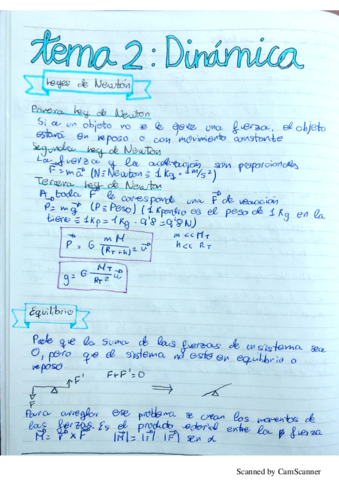 tema 2: Dinámica
Leyes de Newton
Primera Ley de Newton
Si a un objeto no se le ejerce una fuerza, el objeto
estará en reposo o con movimiento constante
Segunda Ley de Newton
La fuerza y la aceleración son proporcionales
F = ma (N = Newton = 1 Kg · 1 m/s²)
Tercera Ley de Newton
A toda F le corresponde una F de reacción
P = mg (P = Peso) (1 Kpondio es el peso de 1 Kg en la
tierra = 1Kp = 1Kg · 9'8 = 9'8 N)
P = G mM/(R_T+h)² u m << M_T
h << R_T
g = G M_T/R_T² u
Equilibrio
Puede que la suma de las fuerzas de un sistema sea
0, pero que el sistema no esté en equilibrio o
reposo
F+F'=0
F'
F
Para arreglar ese problema se crean los momentos de
las fuerzas. Es el producto vectorial entre la fuerza
M = r x F |M| = |r| |F| sen α
Scanned by CamScanner